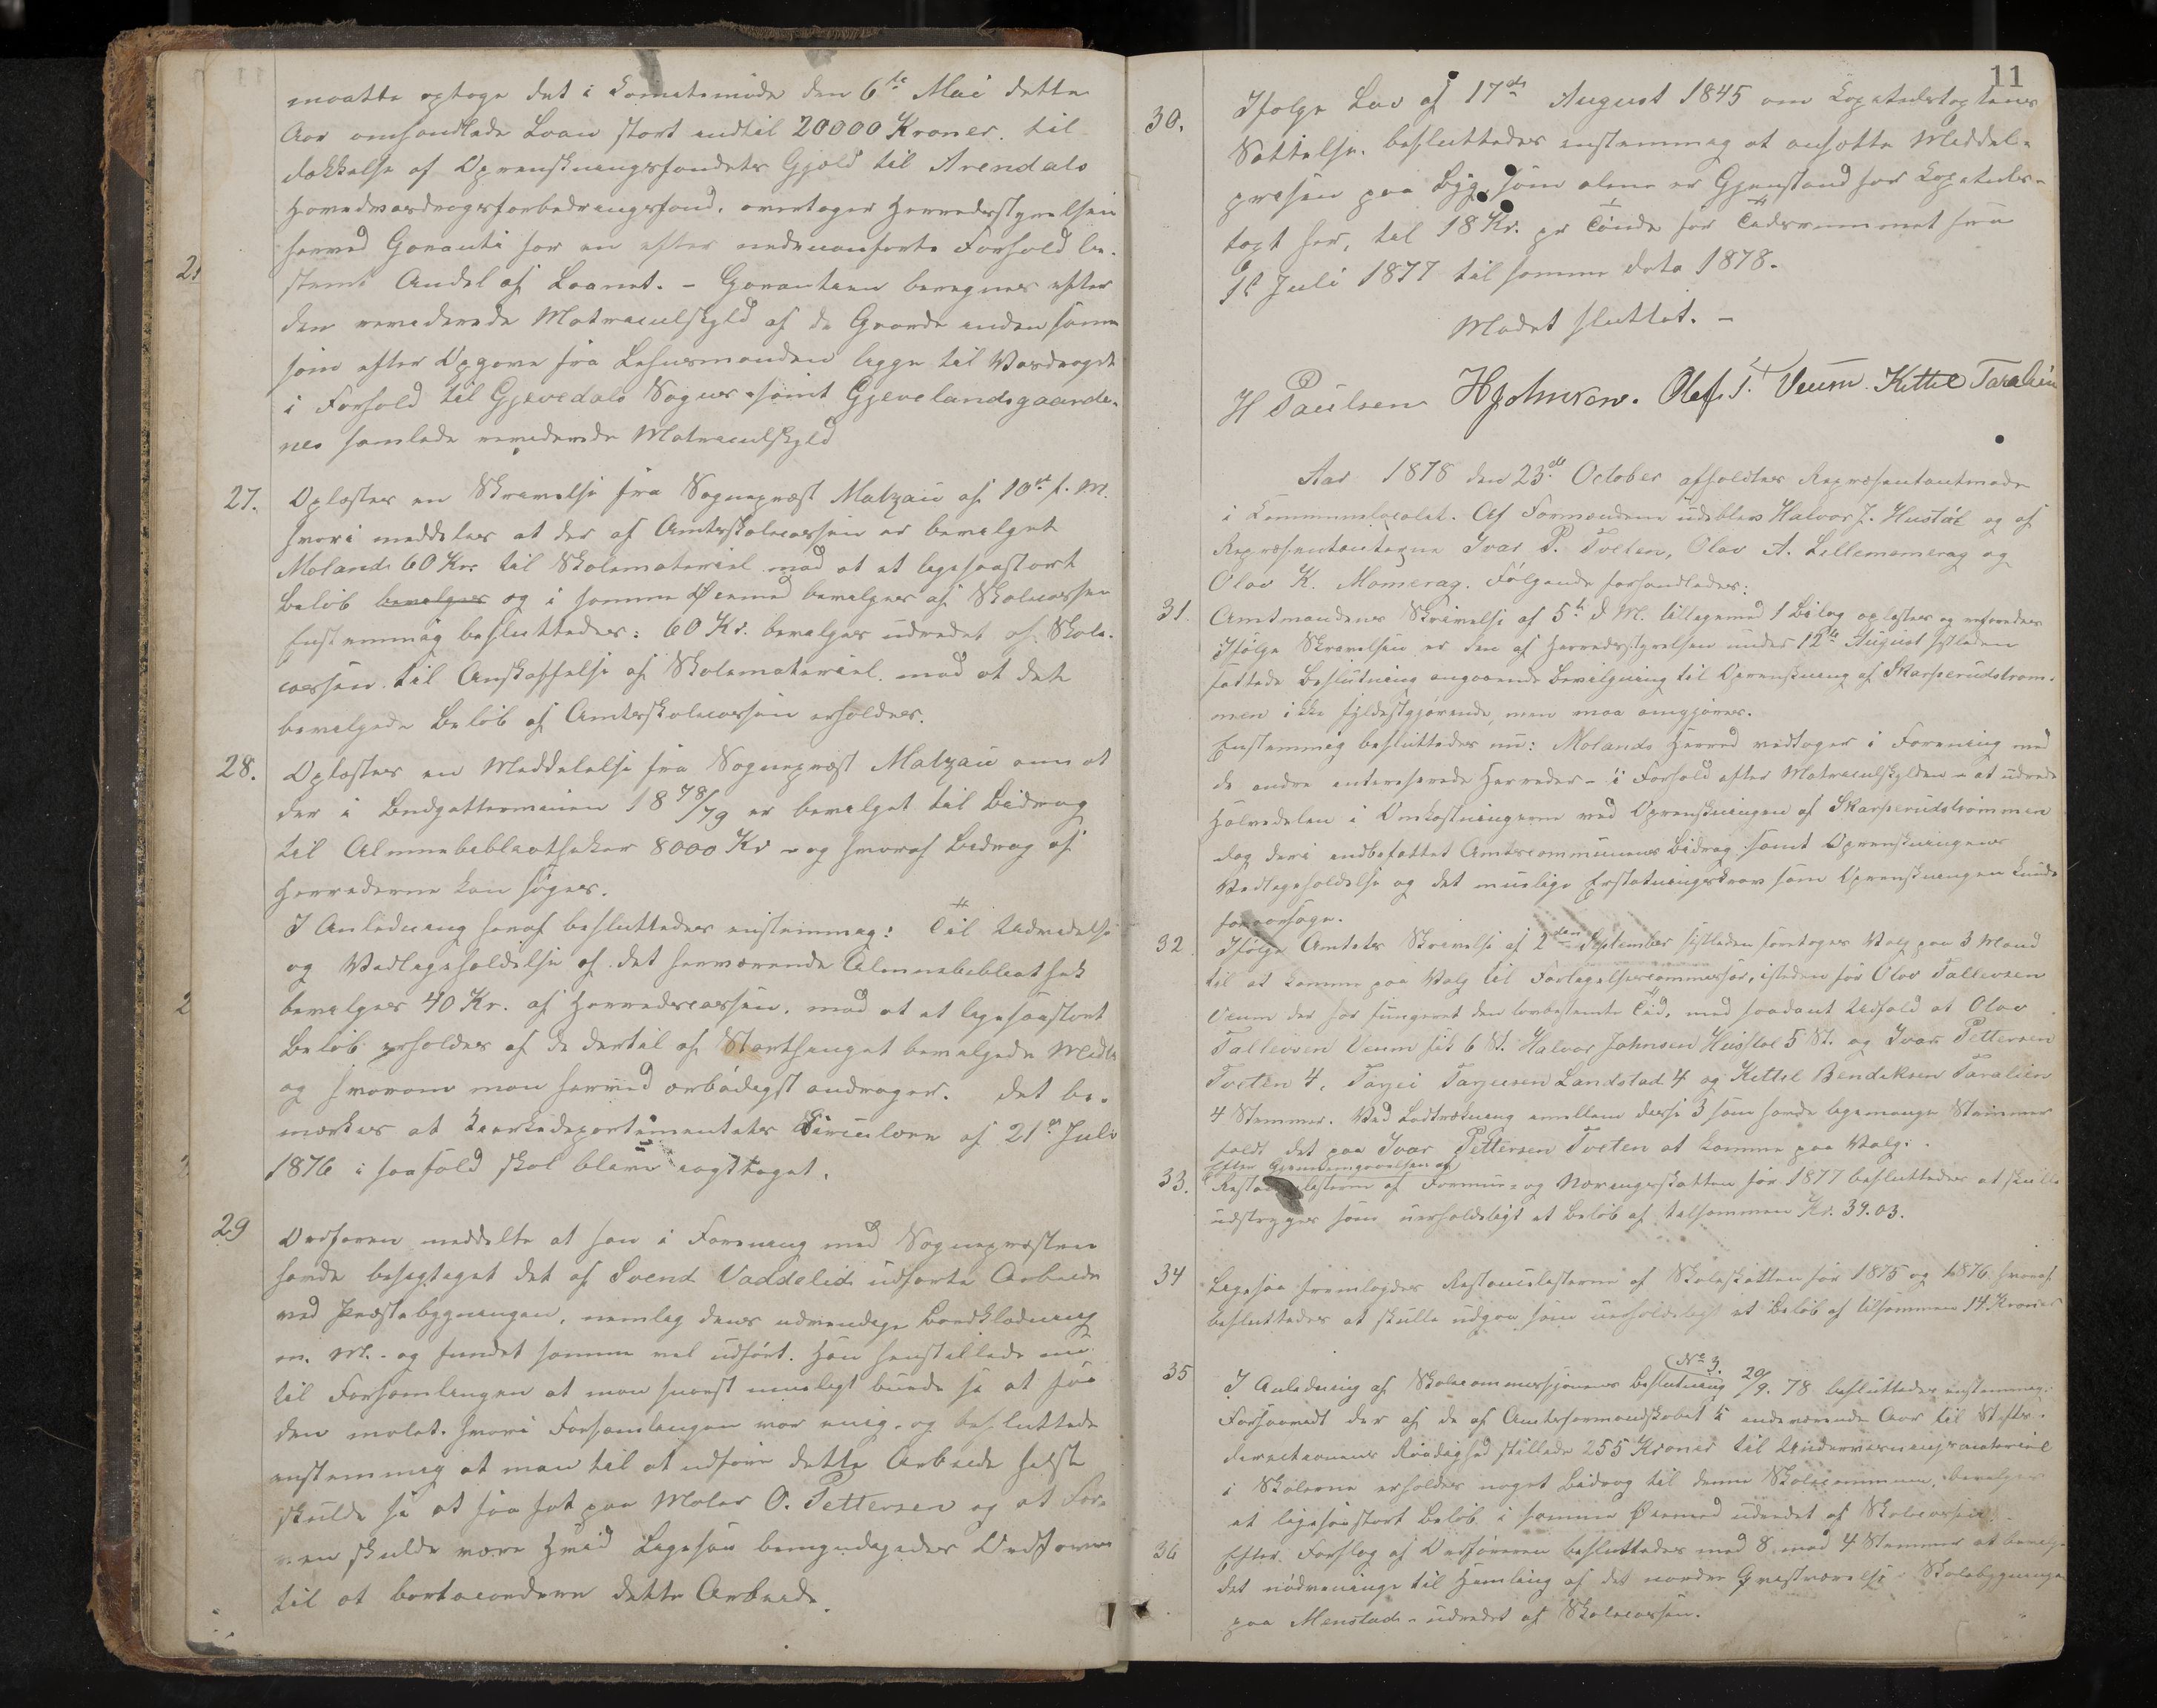 maatte optage det i Komitemøde den 6te Mai dette
Aar omhandlede Laan stort indtil 20000 Kroner til
dækkelse af Oprenskningsfondets Gjæld til Arendals
Hovedvasdragsforbedringsfond, overtager Herredsstyrelsen
herved Garanti for en efter nedenanførte Forhold be-
stemt Andel af Laanet. - Garantien beregnes efter
den reviderede Matriculskyld af de Gaarde inden samme
som efter Opgave fra Lehnsmanden ligge til Vasdraget
i Forhold til Gjevedals Sogns samt Gjevelandsgaarde-
nes samlede reviderede Matriculskyld
27. Oplæstes en Skrivelse fra Sognepræst Matzau af 10de f. M.
hvori meddeles at der af Amtsskolecassen er bevilget
Molands 60 Kr. til Skolemateriel mod at et ligesaastort
Beløb bevilges og i samme Øiemed bevilges af Skolecassen
Enstemmig besluttedes: 60 Kr. bevilges udredet af Skole-
cassen til Anskaffelse af Skolemateriel mod at det
bevilgede Beløb af Amtsskolecassen erholdes.
28. Oplæstes en Meddelelse fra Sognepræst Matzau om at
der i Budgetterminen 1878/79 er bevilget til Bidrag
til Almuebibliotheker 8000 Kr - og hvoraf Bidrag af
Herrederne kan søges.
I Anledning heraf besluttedes enstemmig: Til Udvidelse
og Vedligeholdelse af det herværende Almuebibliothek
bevilges 40 Kr. af Herredscassen, mod at et ligesaastort
Beløb erholdes af de dertil af Storthinget bevilgede Midler
og hvorom man herved ærbødigst andrager. Det be-
mærkes at Kirkedepartementets Circulære af 21de Juli
1876 i saafald skal blive iagttaget.
29 Ordføreren meddelte at han i Forening med Sognepræsten
havde besigtiget det af Svend Vaddelid udførte Arbeide
ved Præstebygningen, nemlig dens udvendige Bordklædning
m. M. - og fundet samme vel udført. Han henstillede nu
til Forsamlingen at man snarest muligt burde se at faa
den malet, hvori Forsamlingen var enig og besluttede
enstemmig at man til at udføre dette Arbeide helst
skulde se at faa fat paa Maler O. Pettersen og at Far-
ven skulde være Hvid Ligesaa bemyndigedes Ordføreren
til at bortaccordere dette Arbeide.
11
30. Ifølge Lov af 17de August 1845 om Kapitelstaxtens
Sættelse, besluttedes enstemmig at ansætte Middel-
prisen paa Byg, som alene er Gjenstand for Kapitels-
taxt her, til 18 Kr. pr Tønde for Tidsrummet fra
1 Juli 1877 til samme dato 1878.
Mødet sluttet. -
H Paulsen HJohnsen. Olef T. Veum. Kittil Taralien
Aar 1878 den 23de October afholdtes Repræsentantmøde
i Kommunelocalet. Af Formændene udeblev Halvor J. Hustøl og af
Repræsentanterne Ivar P. Tveten, Olav A. Lillemomerag og
Olav K. Momerag. Følgende forhandledes:
31. Amtmandens Skrivelse af 5te d M. tilligemed 1 Bilag oplæstes og refereredes
Ifølge Skrivelsen er den af Herredsstyrelsen under 12te August sidstleden
fattede Beslutning angaaende Bevilgning til Oprenskning af Skarperudstrøm-
men ikke fyldestgjørende, men maa omgjøres.
Enstemmig besluttedes nu: Molands Herred vedtager i Forening med
de andre interesserede Herreder - i Forhold efter Matriculskylden - at udrede
Halvdelen i Omkostningerne ved Oprenskningen af Skarperudstrømmen
dog deri indbefattet Amtscommunens Bidrag samt Oprenskningens
Vedligeholdelse og det mulige Erstatningskrav som Oprenskningen kunde
foraarsage.
32. Ifølge Amtets Skrivelse af 2den September sidstleden foretoges Valg paa 3 Mænd
til at komme paa Valg til Forligelsescommissær, isteden for Olav Tallevsen
Veum der har fungeret den lovbestemte Tid, med saadant Udfald at Olav
Tallevsen Veum fik 6 St. Halvor Johnsen Hustøl 5 St. og Ivar Pettersen
Tveten 4, Tarjei Tarjeisen Landstad 4 og Kittil Bendiksen Taralien
4 Stemmer. Ved Lodtrækning imellem disse 3 som havde ligemange Stemmer
faldt det paa Ivar Pettersen Tveten at komme paa Valg.
Efter Gjennemgaaelsen af
33. Restancelisterne af Formues og Næringsskatten for 1877 besluttedes at skulle
udstryges som uerholdeligt et Beløb af tilsammen Kr. 39.03.
34 Ligesaa fremlagdes Restancelisterne af Skoleskatten for 1875 og 1876 hvoraf
besluttedes at skulle udgaa som uerholdeligt et Beløb af tilsammen 14 Kroner
(No 3.
35 I Anledning af Skolecommissionens Beslutning 20/9. 78 besluttedes enstemmig:
Forsaavidt der af de af Amtsformandskabet i indeværende Aar til Stifts-
directionens Raadighed stillede 255 Kroner til Undervisningsmateriel
i Skolerne erholdes noget Bidrag til denne Skolecommune, bevilges
et ligesaastort Beløb i samme Øiemed udredet af Skolecassen.
36 Efter Forslag af Ordføreren besluttedes med 8 mod 4 Stemmer at bevilge
det nødvendige til Himling af det nordre Gjesteværelse i Skolebygningen
paa Menstad - udredet af Skolecassen.